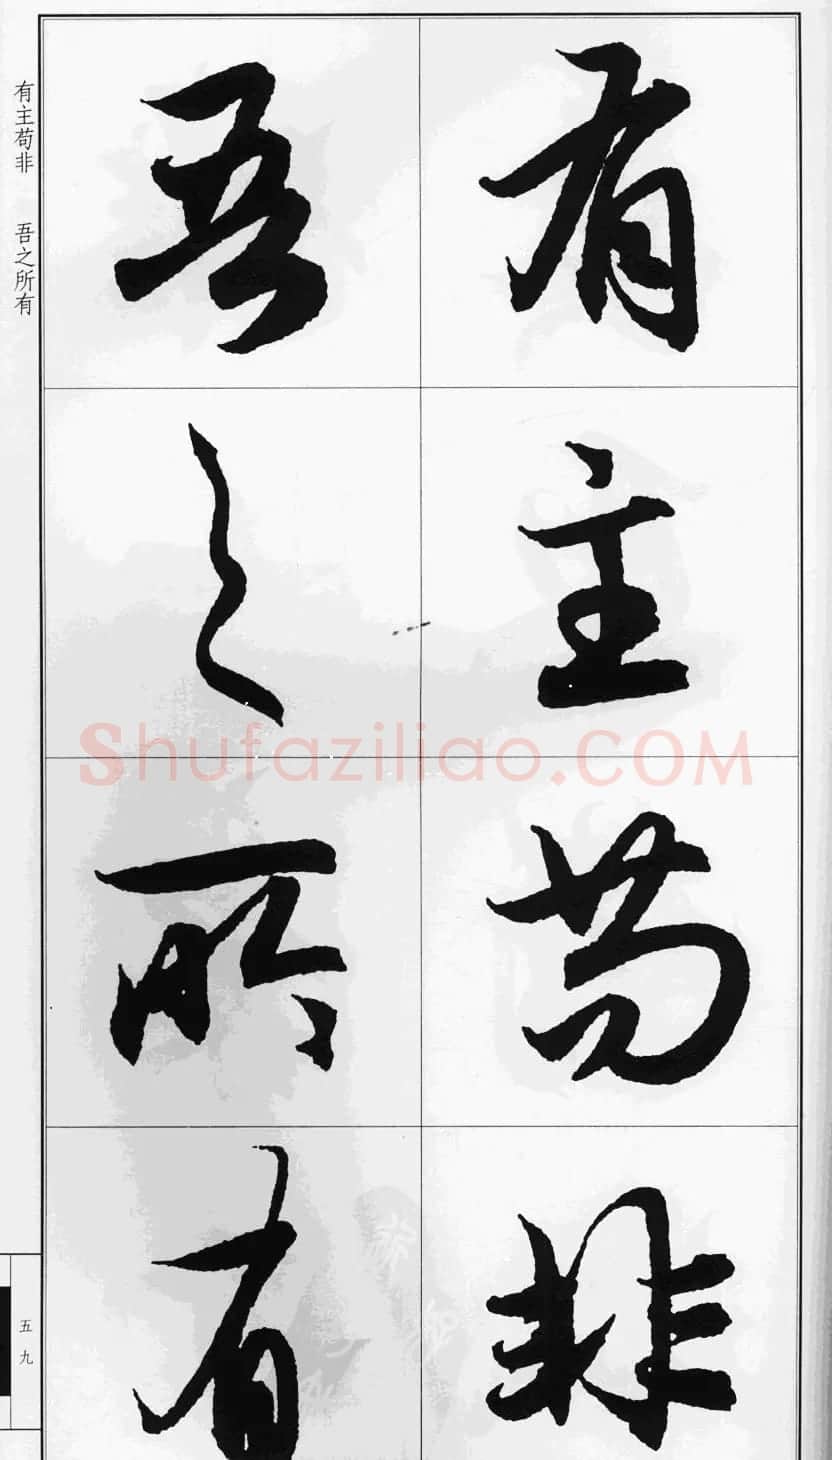 有主苟非
吾之所有
有主苟非 吾之所有
五九
Shufaziliao.COM